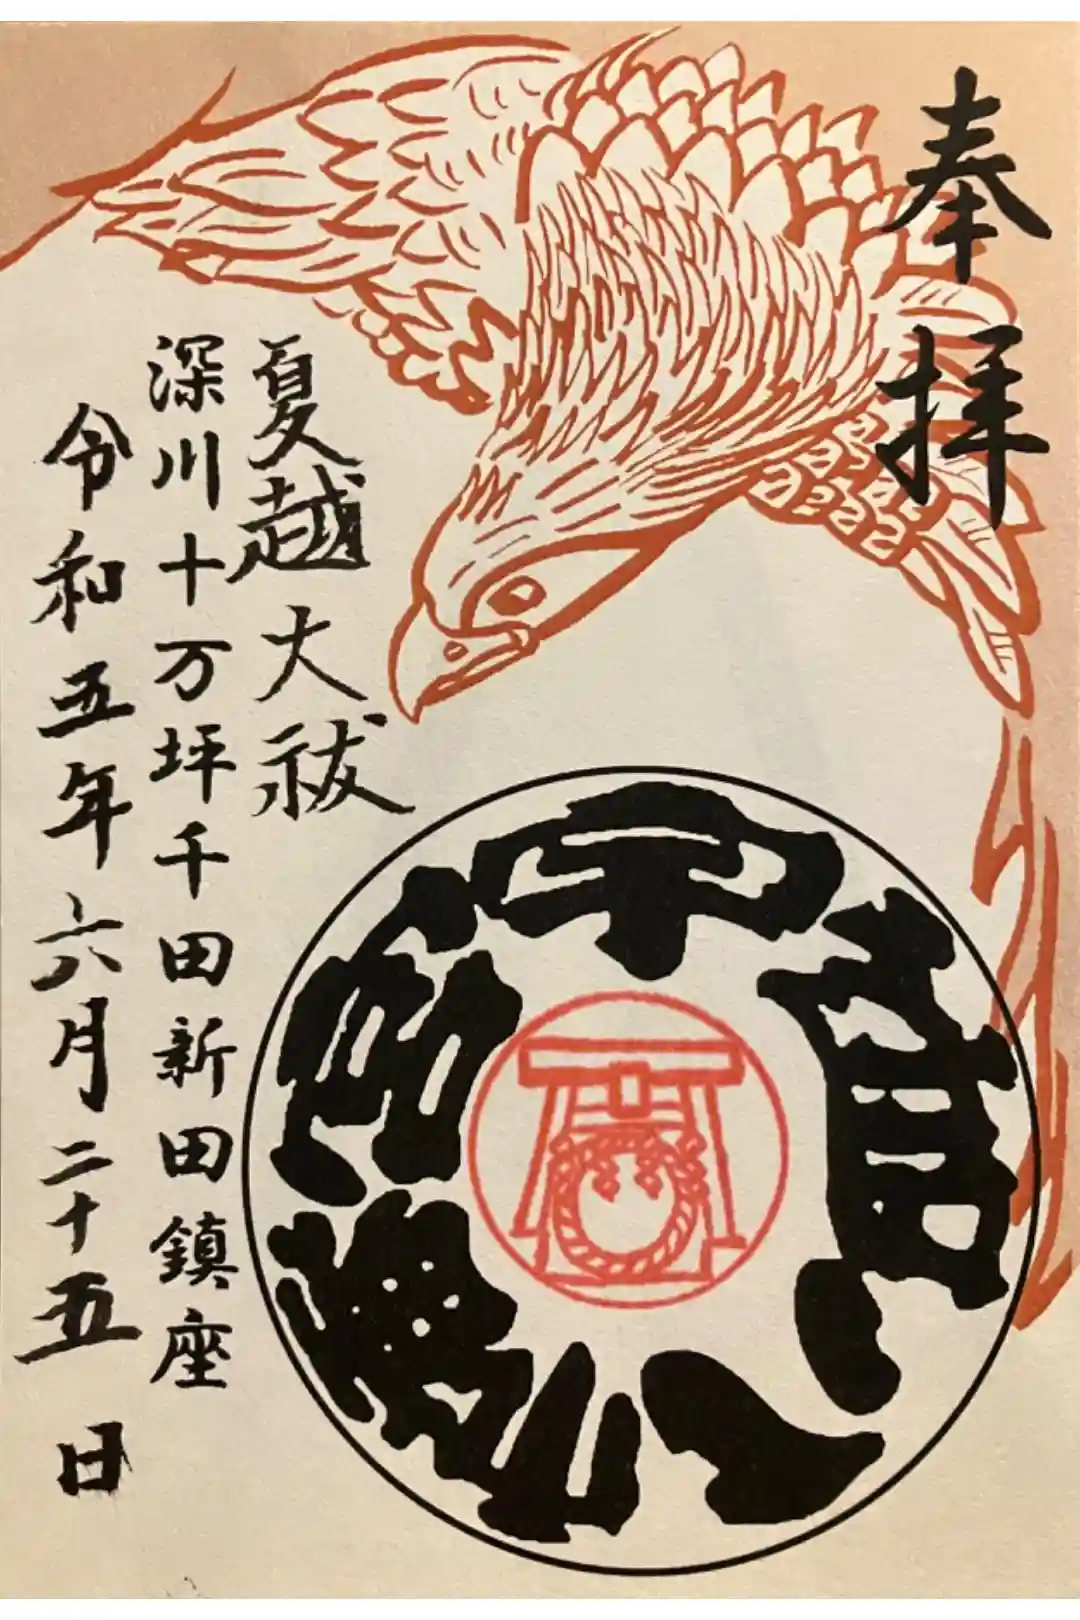 奉拝
夏越大祓
深川十万坪千田新田鎮座
令和五年六月二十五日
宇賀八幡